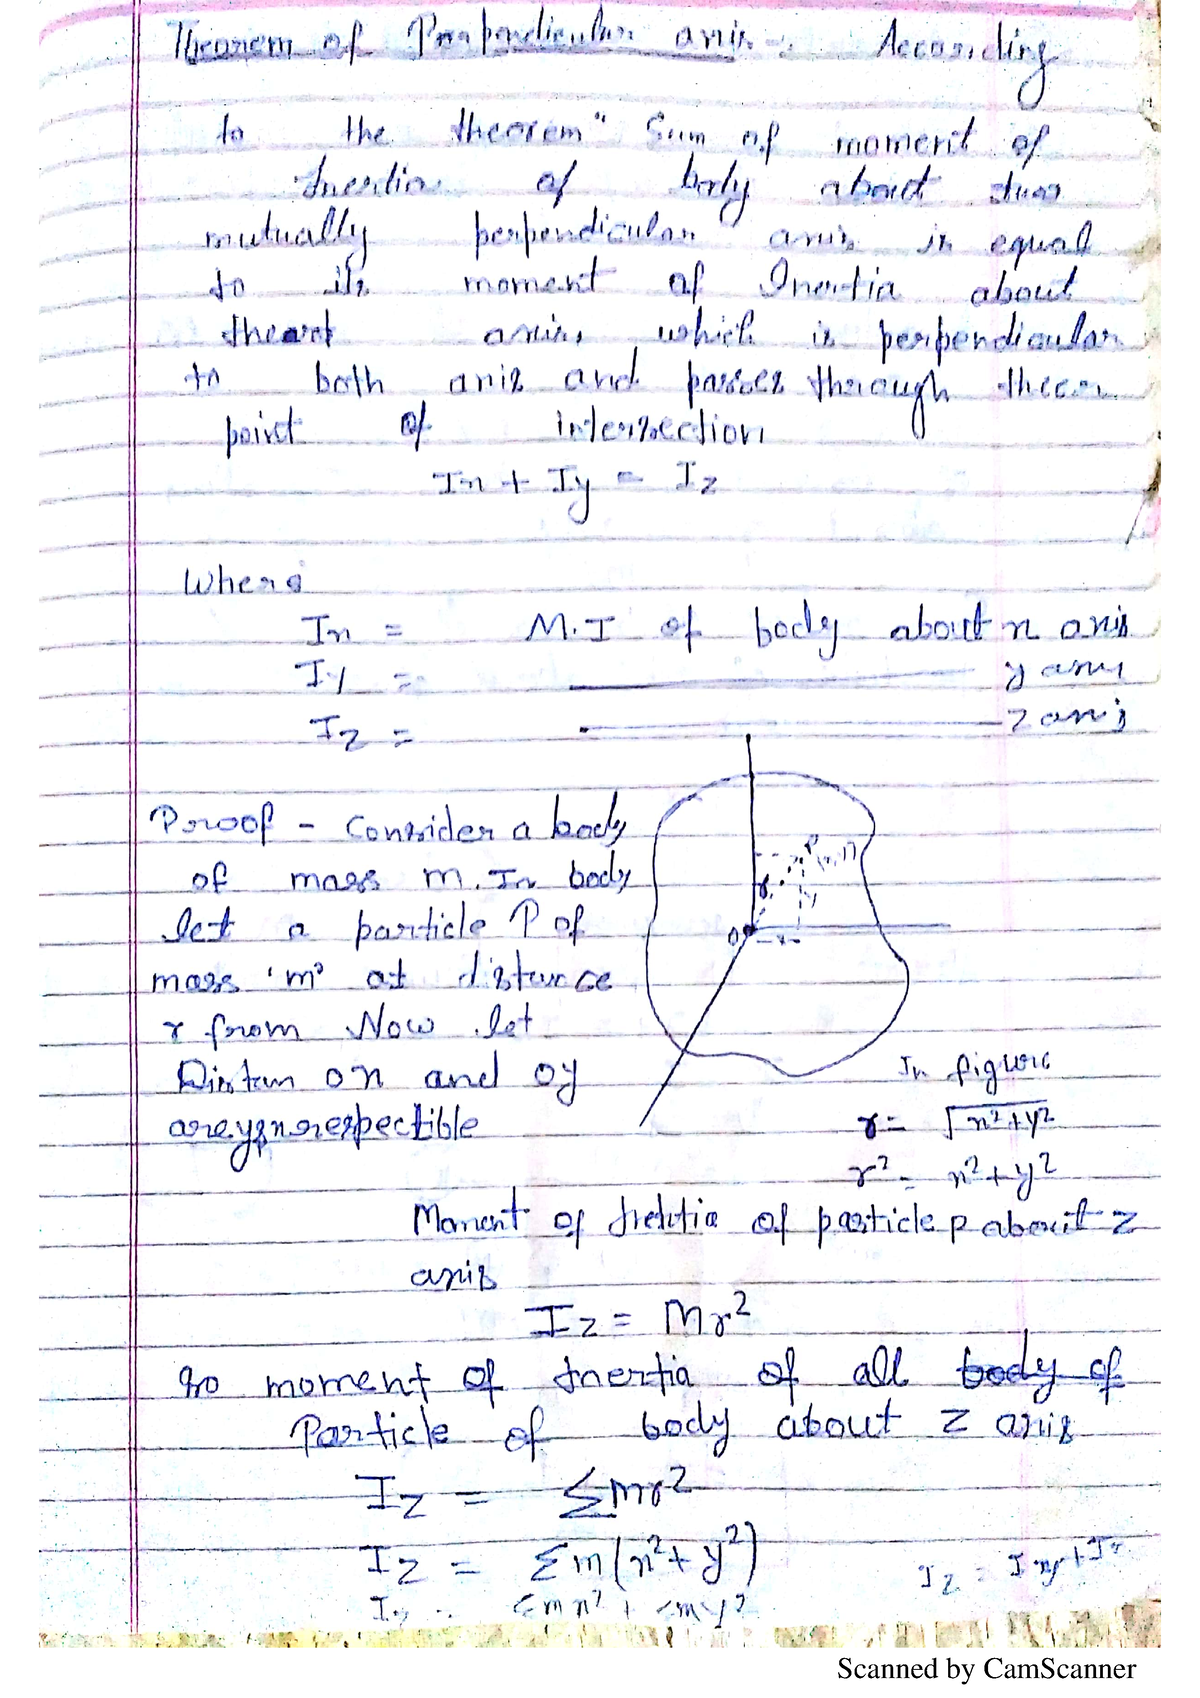 Theorem of Perpendicular axis :- According
to the theorem "Sum of moment of
Inertia of body about two
mutually perpendicular axis is equal
to its moment of Inertia about
axis, which is perpendicular
to both axis and passes through
point of intersection
Ix + Iy = Iz
Where
Ix = M.I of body about x axis
Iy = ——— y axis
Iz = ——— z axis
Proof - Consider a body
of mass m. In body
let a particle P of
mass 'm' at distance
r from Now let
Distan ox and oy
are y & x respectible
P
(x, y)
r
y
O
x
In figure
r = √x²+y²
r² = x²+y²
Moment of Inertia of particle p about z
axis
Iz = Mr²
so moment of Inertia of all body of
Particle of body about z axis
Iz = Σmr²
Iz = Σm(x²+y²)
Σmx² + Σmy²
Scanned by CamScanner